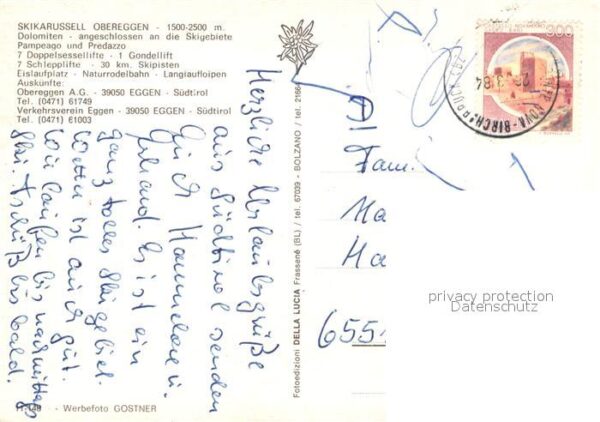 SKIKARUSSELL OBEREGGEN - 1500-2500 m.
Dolomiten - angeschlossen an die Skigebiete
Pampeago und Predazzo
7 Doppelsessellifte - 1 Gondellift
7 Schlepplifte - 30 km. Skipisten
Eislaufplatz - Naturrodelbahn - Langlaufloipen
Auskünfte:
Obereggen A.G. - 39050 EGGEN - Südtirol
Tel. (0471) 61749
Verkehrsverein Eggen - 39050 EGGEN - Südtirol
Tel. (0471) 61003
Herzliche Urlaubsgrüße
aus Südtirol senden
Euch Hannelore u.
Es ist ein
ganz tolles Skigebiet.
Wetter ist auch gut.
Wir laufen bis nachmittags
Ski. Tschüß bis bald.
11-148 - Werbefoto GOSTNER
Fotoedizioni DELLA LUCIA Frassenè (BL) / tel. 67039 - BOLZANO / tel. 21664
300
NOVA-BIRCHABRUCK
84
Fam.
Ha
Ha
655
privacy protection
Datenschutz